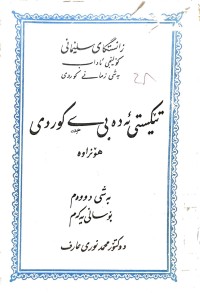 زانستگای سلێمانی
کۆلیجی ئاداب
بەشی زمانی کوردی
تێکستی ئەدەبی کوردی
هۆنراوە
بەشی دووەم
بۆ سالی یەکەم
دوکتۆر محمد نوری عارف